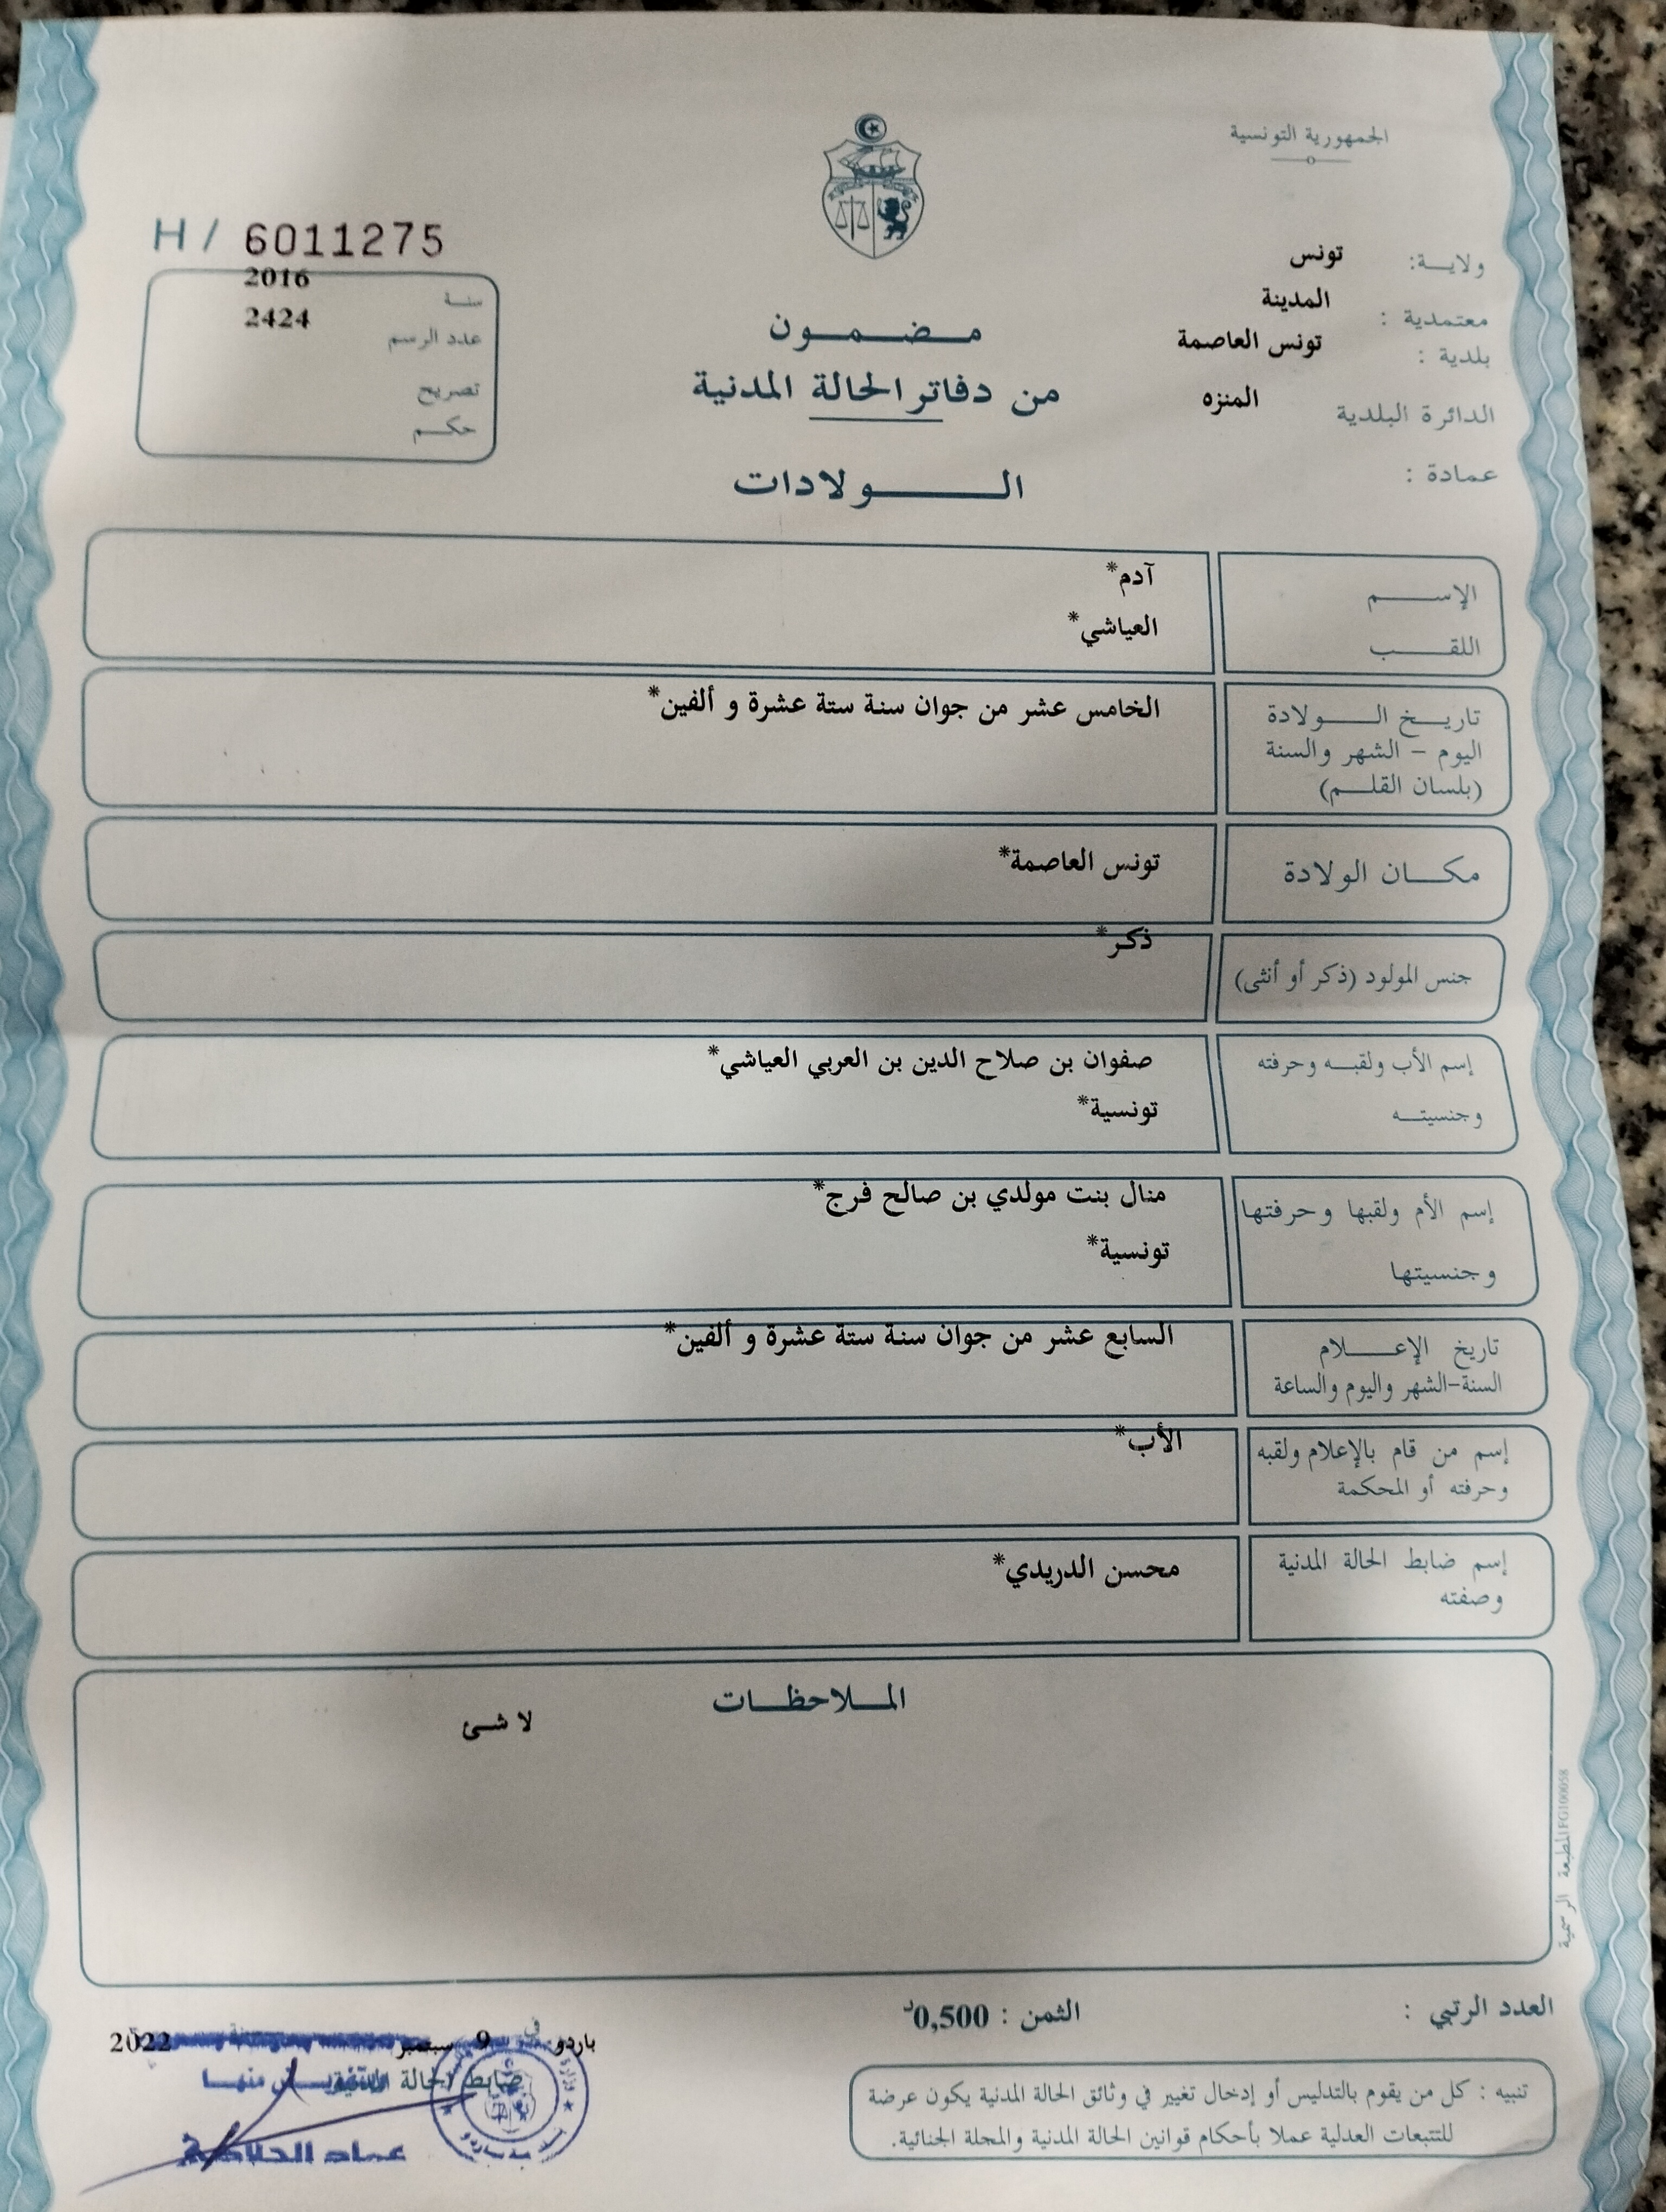 الجمهورية التونسية
ولايـــة: تونس
معتمدية : المدينة
بلدية : تونس العاصمة
الدائرة البلدية المنزه
عمادة :
H / 6011275
سنـة 2016
عدد الرسم 2424
تصريح
حكــم
مـضـمـون
من دفاتر الحالة المدنية
الـــولادات
الإســـم آدم*
اللقـــب العياشي*
تاريـخ الـــولادة الخامس عشر من جوان سنة ستة عشرة و ألفين*
اليوم – الشهر والسنة
(بلسان القلـــم)
مكـــان الولادة تونس العاصمة*
جنس المولود (ذكر أو أنثى) ذكر*
إسم الأب ولقبـــه وحرفته صفوان بن صلاح الدين بن العربي العياشي*
وجنسيتـــه تونسية*
إسم الأم ولقبها وحرفتها منال بنت مولدي بن صالح فرج*
وجنسيتها تونسية*
تاريخ الإعـــلام السابع عشر من جوان سنة ستة عشرة و ألفين*
السنة-الشهر واليوم والساعة
إسم من قام بالإعلام ولقبه الأب*
وحرفته أو المحكمة
إسم ضابط الحالة المدنية محسن الدريدي*
وصفته
المـــلاحظـــات
لا شئ
المطبعة الرسمية FG100058
العدد الرتبي :
الثمن : 0,500د
باردو في 9 سبتمبر 2022
ضابط الحالة المدنية
تنبيه : كل من يقوم بالتدليس أو إدخال تغيير في وثائق الحالة المدنية يكون عرضة
للتتبعات العدلية عملا بأحكام قوانين الحالة المدنية والمجلة الجنائية.